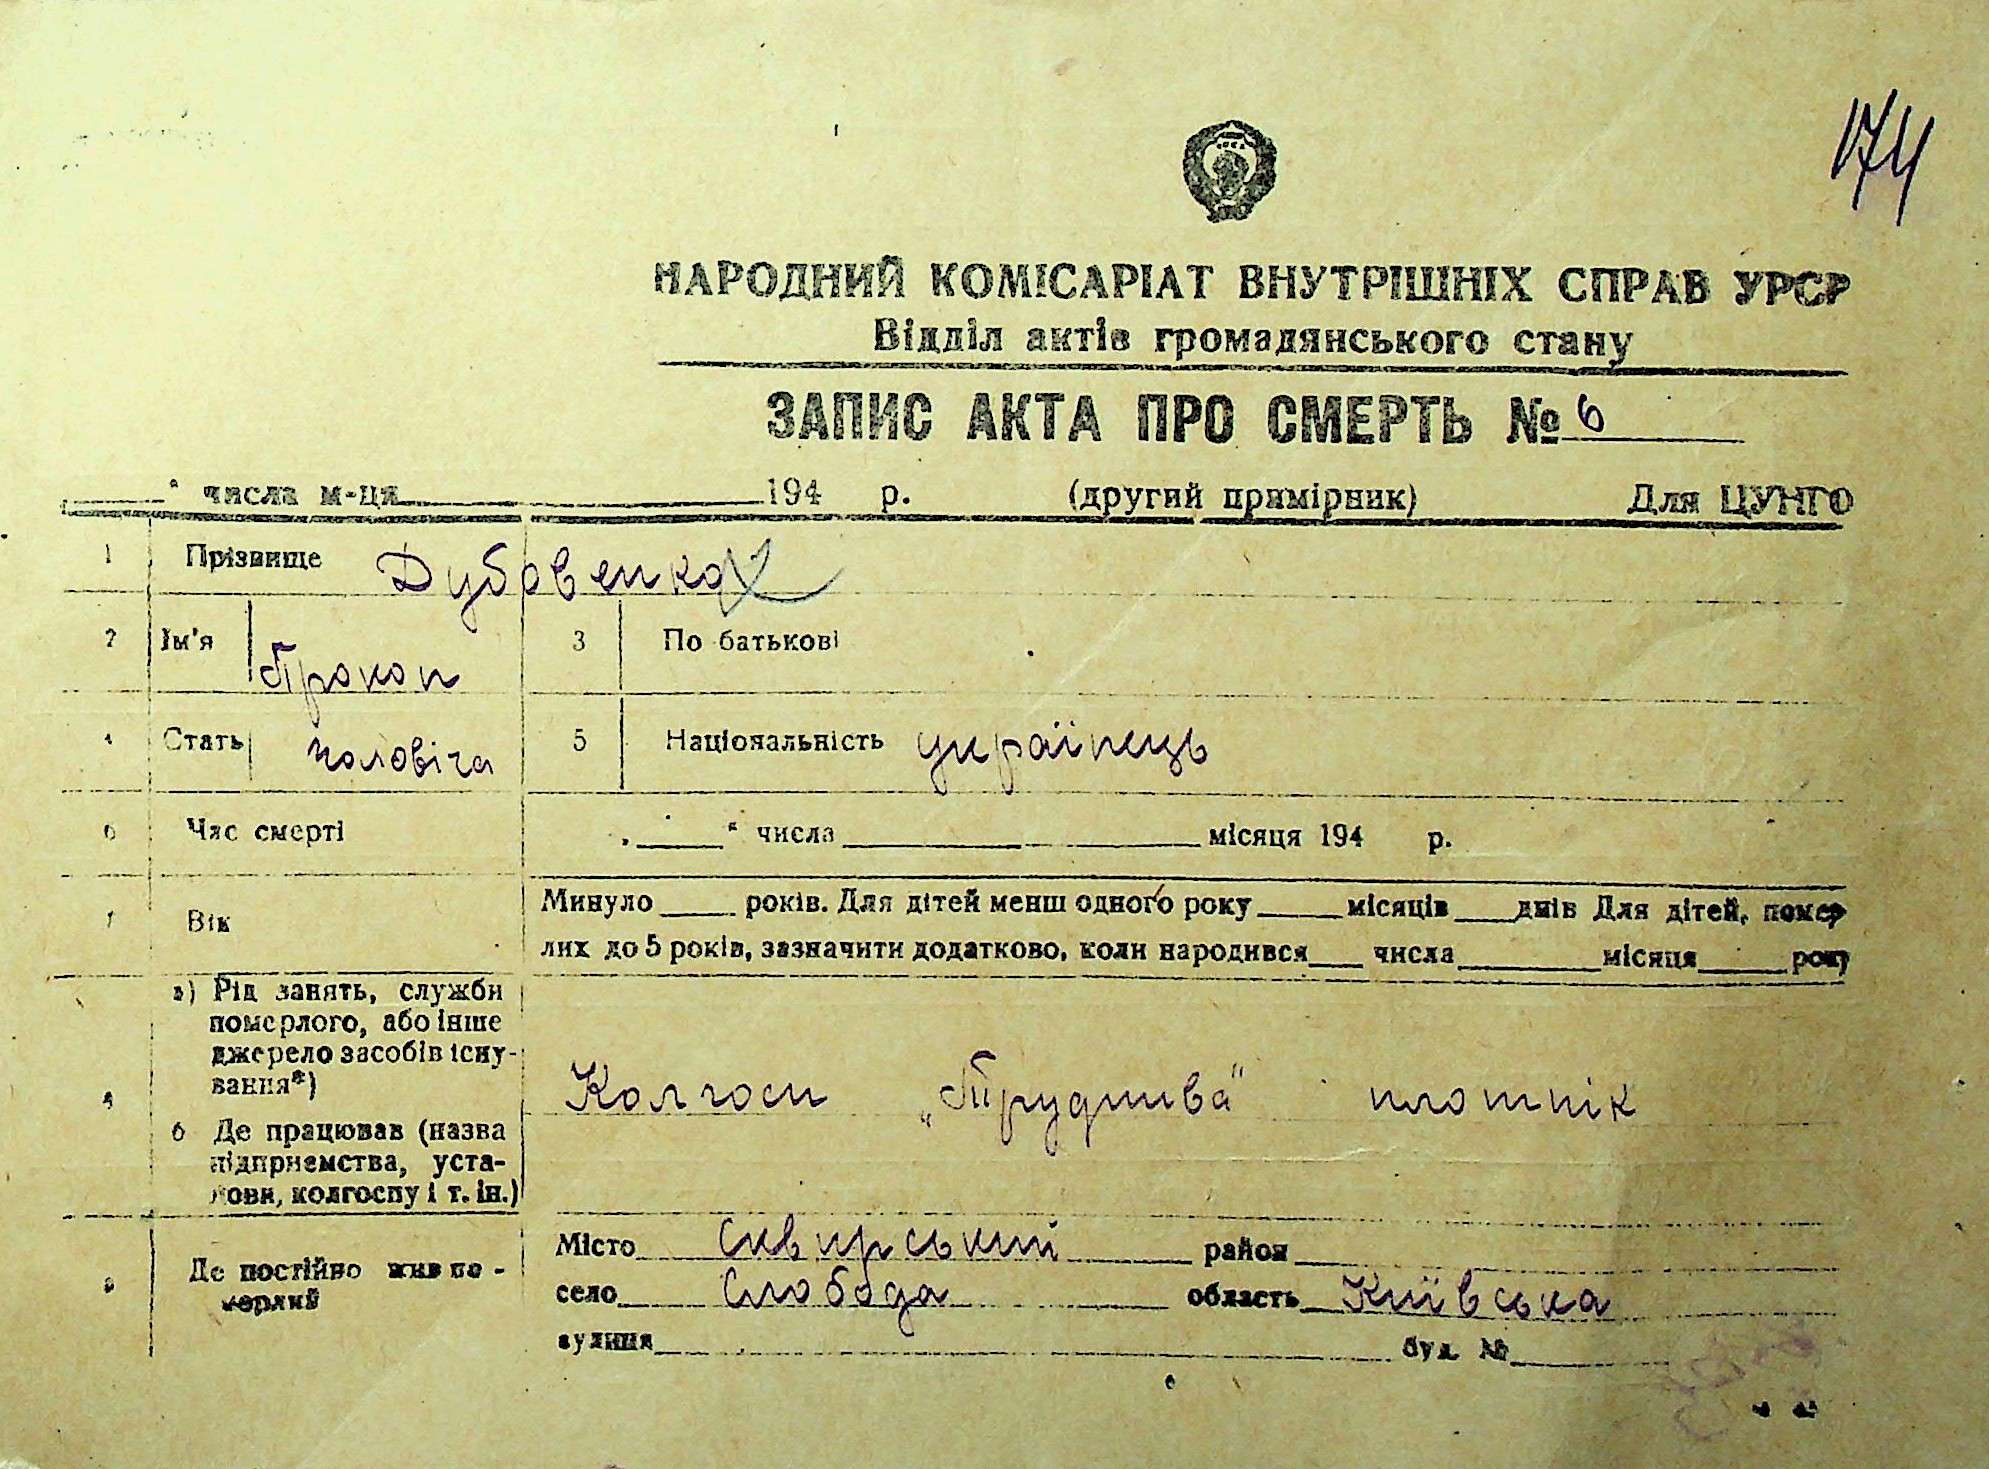 174
НАРОДНИЙ КОМІСАРІАТ ВНУТРІШНІХ СПРАВ УРСР
Відділ актів громадянського стану
ЗАПИС АКТА ПРО СМЕРТЬ № 6
" числа м-ця 194 р. (другий примірник) Для ЦУНГО
1 Прізвище Дубовенко
2 Ім'я Прокоп 3 По батькові
4 Стать чоловіча 5 Національність українець
6 Час смерті " " числа місяця 194 р.
7 Вік Минуло років. Для дітей менш одного року місяців днів Для дітей, помер-
лих до 5 років, зазначити додатково, коли народився числа місяця року
8 а) Рід занять, служби
померлого, або інше
джерело засобів існу-
вання*)
Колгосп плотнік
б Де працював (назва
підприємства, уста-
нови, колгоспу і т. ін.)
9 Де постійно жив по-
мерлий
Місто Сквирський район
село Слобода область Київська
вулиця буд. №